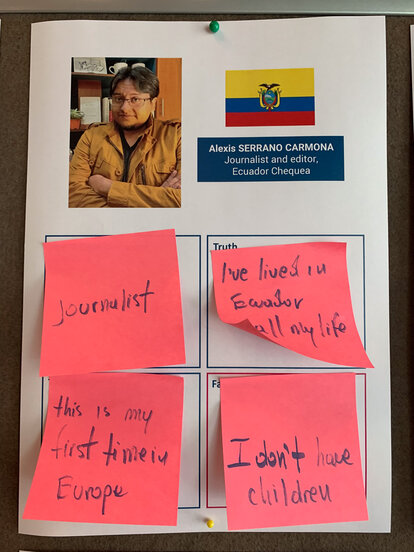 Alexis SERRANO CARMONA
Journalist and editor,
Ecuador Chequea
journalist
Truth
I've lived in
Ecuador
all my life
this is my
first time in
Europe
Fa
I don't have
children